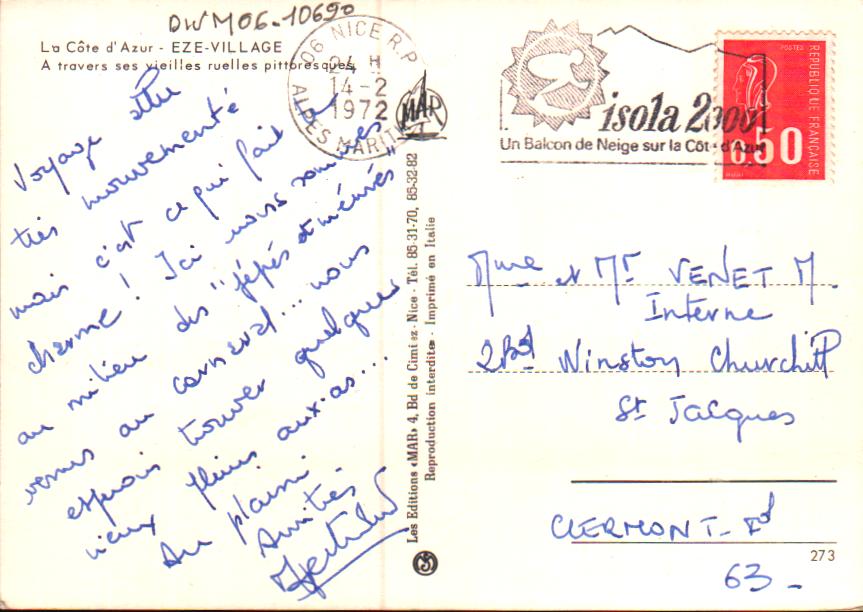 DWM06-10690
La Côte d'Azur - EZE-VILLAGE
A travers ses vieilles ruelles pittoresques
06 NICE R.P.
24 H
14-2
1972
ALPES MARITIMES
MAR
isola 2000
Un Balcon de Neige sur la Côte d'Azur
POSTES
REPUBLIQUE FRANÇAISE
0.50
Voyage
très mouvementé
mais c'est ce qui fait le
charme ! Ici nous sommes
au milieu des "pépés et mémés"
venus au carnaval... nous
espérons trouver quelques
vieux pleins aux as...
Au plaisir
Amitiés
Les Editions «MAR» 4, Bd de Cimiez - Nice - Tél. 85-31-70, 85-32-82
Reproduction interdite - Imprimé en Italie
Mme et Mr VENET M.
Interne
2 Bd Winston Churchill
St Jacques
CLERMONT-Fd
63_
273